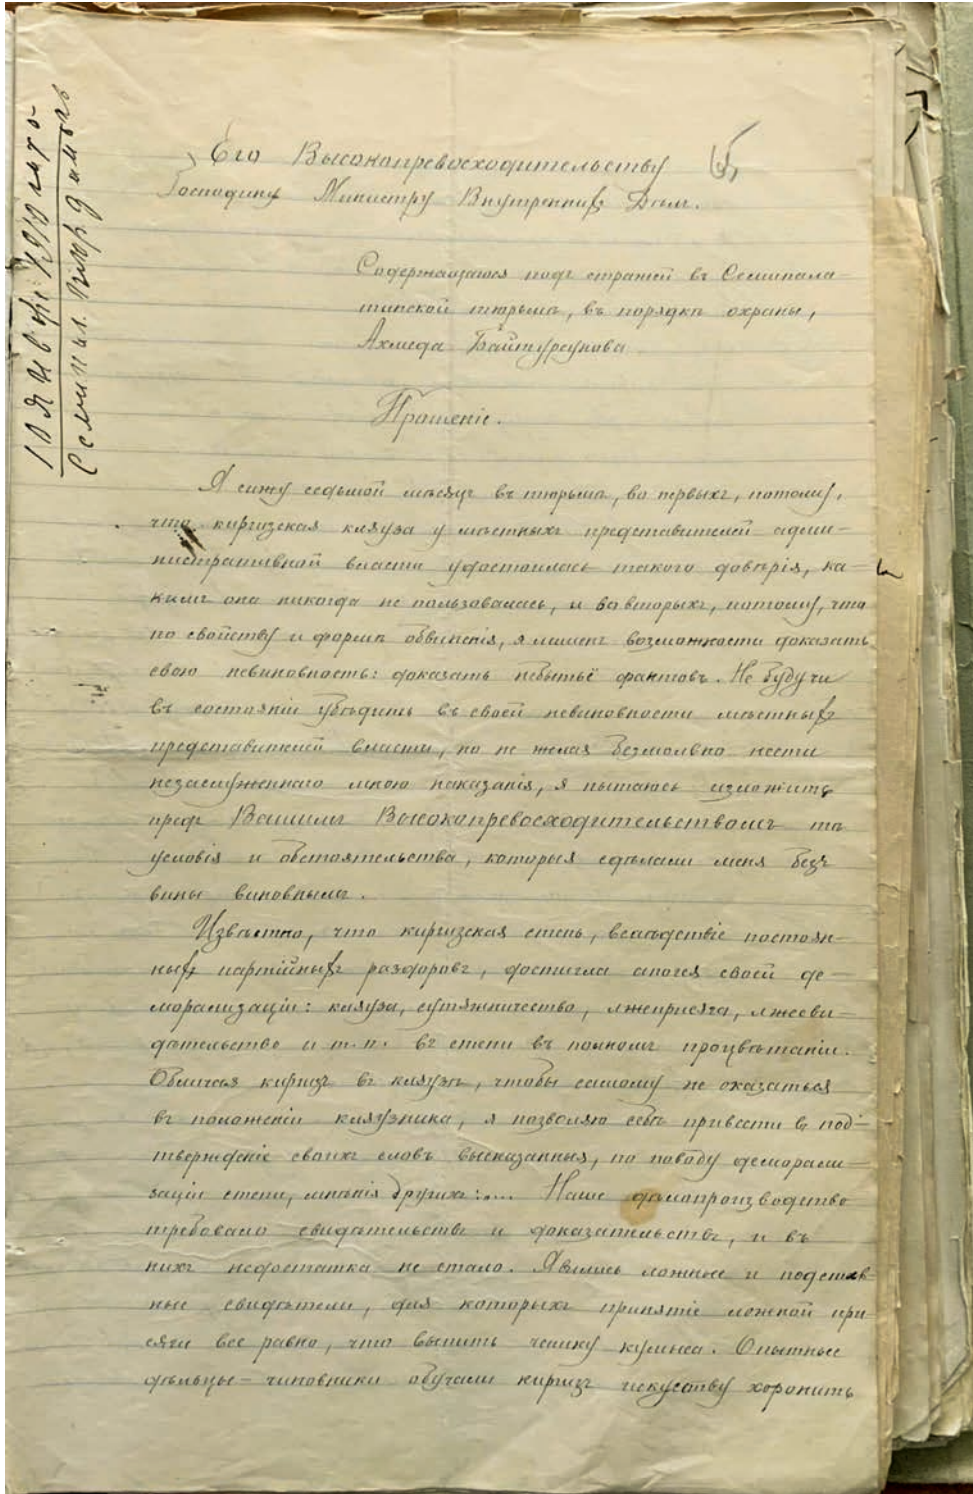 10 Января 1910 года
Семипал. тюр.
Его Высокопревосходительству
Господину Министру Внутреннихъ Делъ.
Содержащагося подъ стражей въ Семипала-
тинской тюрьмѣ, въ порядкѣ охраны,
Ахмеда Байтурсунова
Прошеніе.
Я сижу седьмой мѣсяцъ въ тюрьмѣ, во первыхъ, потому,
что киргизская кляуза у мѣстныхъ представителей адми-
нистративной власти удостоилась такого довѣрія, ка-
кимъ она никогда не пользовалась, и во вторыхъ, потому, что
по свойству и формѣ обвиненія, я лишенъ возможности доказать
свою невиновность: доказать небытьё фактовъ. Не будучи
въ состояніи убѣдить въ своей невиновности мѣстныхъ
представителей власти, но не желая безмолвно нести
незаслуженнаго мною наказанія, я пытаюсь изложить
предъ Вашимъ Высокопревосходительствомъ тѣ
условія и обстоятельства, которыя сдѣлали меня безъ
вины виновнымъ.
Извѣстно, что киргизская степь, вслѣдствіе постоян-
ныхъ партійныхъ раздоровъ, достигла апогея своей де-
морализаціи: кляуза, сутяжничество, лжеприсяга, лжесви-
дѣтельство и т.п. въ степи въ полномъ процвѣтаніи.
Обличая киргизъ въ кляузѣ, чтобы самому не оказаться
въ положеніи кляузника, я позволяю себѣ привести въ под-
твержденіе своихъ словъ высказанныя, по поводу деморали-
заціи степи, мнѣнія другихъ:.... Наше дѣлопроизводство
требовало свидѣтельствъ и доказательствъ, и въ
нихъ недостатка не стало. Явились ложные и подстав-
ные свидѣтели, для которыхъ принятіе ложной при
сяги все равно, что выпить чашку кумыса. Опытные
дѣльцы-чиновники обучали киргизъ искусству хоронить